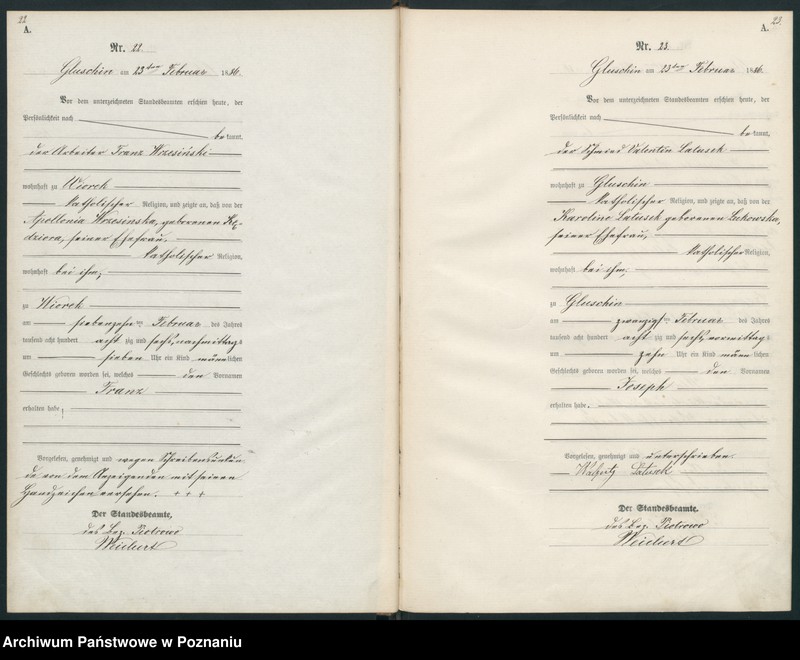 22.
A.
Nr. 22.
Gluschin am 23ten Februar 1886.
Vor dem unterzeichneten Standesbeamten erschien heute, der
Persönlichkeit nach
bekannt,
der Arbeiter Franz Wrzesiński
wohnhaft zu Wiorek
katholischer Religion, und zeigte an, daß von der
Apollonia Wrzesinska, geborenen Kę-
dziora, seiner Ehefrau,
katholischer Religion,
wohnhaft bei ihm,
zu Wiorek
am siebenzehnten Februar des Jahres
tausend acht hundert achtzig und sechs, nachmittags
um sieben Uhr ein Kind männlichen
Geschlechts geboren worden sei, welches den Vornamen
Franz
erhalten habe;
Vorgelesen, genehmigt und wegen Schreibensunkun-
de von dem Anzeigenden mit seinem
Handzeichen versehen. + + +
Der Standesbeamte.
des Bez. Piotrowo
Weichert
23.
A.
Nr. 23.
Gluschin am 23ten Februar 1886.
Vor dem unterzeichneten Standesbeamten erschien heute, der
Persönlichkeit nach
bekannt,
der Schmied Valentin Latusek
wohnhaft zu Gluschin
katholischer Religion, und zeigte an, daß von der
Karoline Latusek geborenen Lukowska,
seiner Ehefrau,
katholischer Religion,
wohnhaft bei ihm,
zu Gluschin
am zwanzigsten Februar des Jahres
tausend acht hundert achtzig und sechs, vormittags
um zehn Uhr ein Kind männlichen
Geschlechts geboren worden sei, welches den Vornamen
Joseph
erhalten habe.
Vorgelesen, genehmigt und unterschrieben
Latusek
Der Standesbeamte.
des Bez. Piotrowo
Weichert
Archiwum Państwowe w Poznaniu